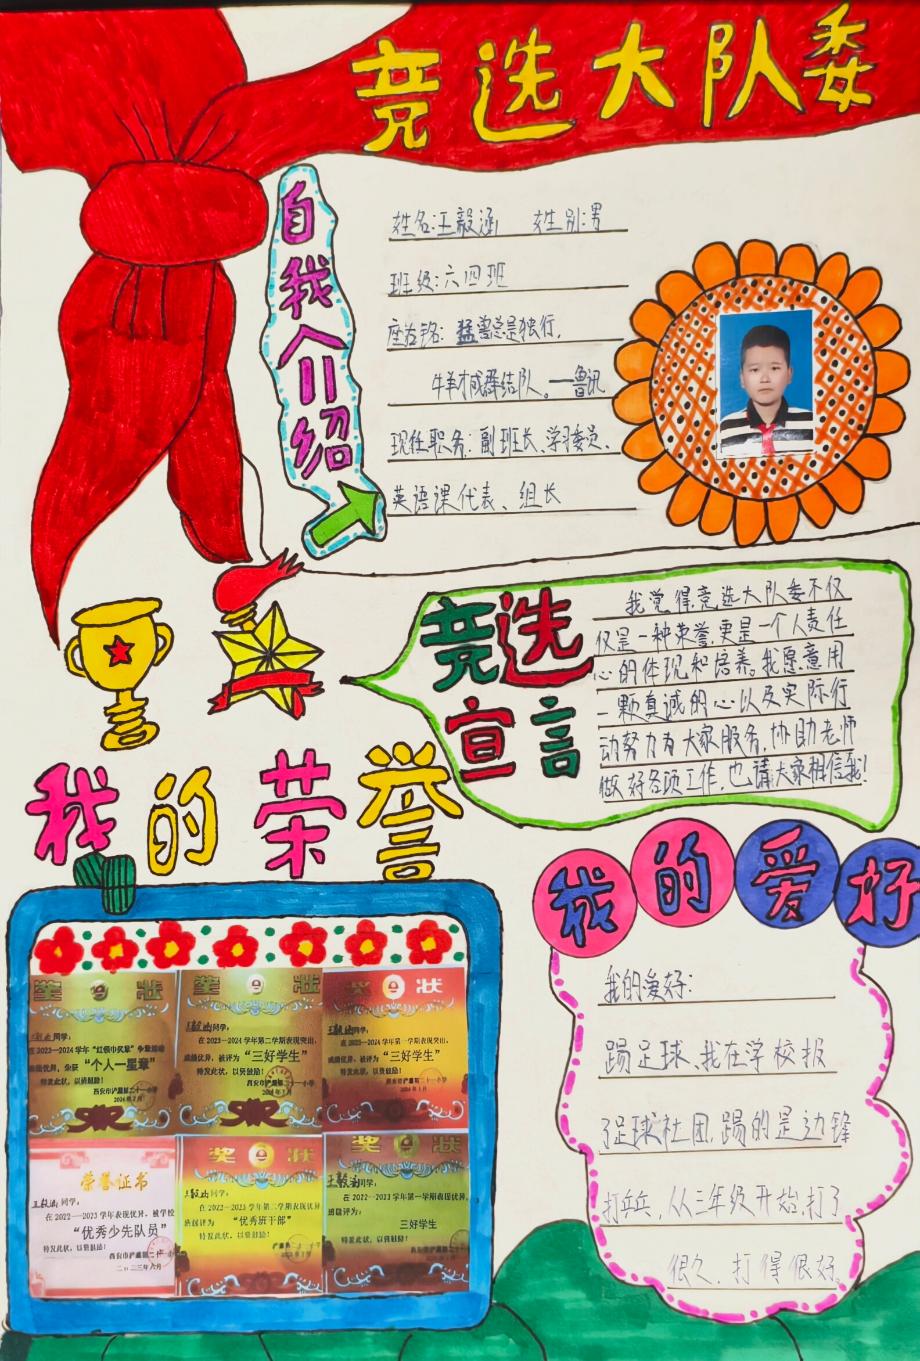 竞选大队委
自我介绍
姓名:王毅涵 性别:男
班级:六四班
座右铭:猛兽总是独行,
牛羊才成群结队。——鲁讯
现任职务:副班长、学习委员、
英语课代表、组长
竞选
宣言
我觉得竞选大队委不仅
仅是一种荣誉,更是一个人责任
心的体现和培养。我愿意用
一颗真诚的心以及实际行
动努力为大家服务,协助老师
做好各项工作,也请大家相信我!
我的荣誉
奖状
王毅涵同学:
在2023—2024学年“红领巾奖章”争章活动
成绩优异,荣获“个人一星章”
特发此状,以资鼓励!
西安市浐灞第二十一小学
2024年7月
奖状
王毅涵同学:
在2023—2024学年第二学期表现突出,
成绩优异,被评为“三好学生”
特发此状,以资鼓励!
西安市浐灞第二十一小学
奖状
王毅涵同学:
在2023—2024学年第一学期表现突出,
成绩优异,被评为“三好学生”
特发此状,以资鼓励!
西安市浐灞第二十一小学
2024年1月
荣誉证书
王毅涵同学:
在2022—2023学年表现优异,被学校
“优秀少先队员”
特发此状,以资鼓励!
西安市浐灞第二十一小学
二〇二三年六月
奖状
王毅涵同学:
在2022—2023学年第二学期表现优异
被评为“优秀班干部”
特发此状,以资鼓励!
奖状
王毅涵同学:
在2022—2023学年第一学期表现优异,
被评为
三好学生
特发此状,以资鼓励!
我的爱好
我的爱好:
踢足球、我在学校报
了足球社团,踢的是边锋
打乒乓,从三年级开始,打了
很久,打得很好。